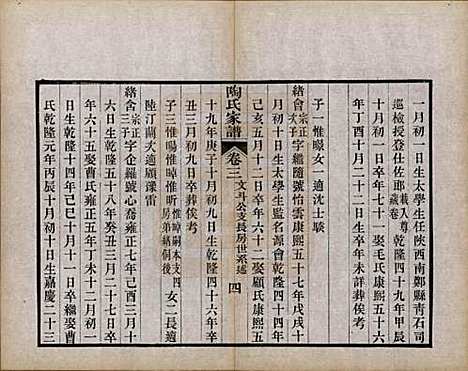 一月初一日生太學生任陜西南鄭縣青石司
巡檢授登仕佐郎載入尊藏卷乾隆四十九年甲辰
五月初一日卒年七十一娶毛氏康熙五十六
年丁酉十月二十二日生卒年未詳葬俟考
子一惟暻女一適沈士駿
緒會宗正子字繼隨號怡雲康熙五十七年戊戌十
月初十日生太學生監名源會乾隆四十四年
己亥五月十二日卒年六十二娶顧氏康熙五
陶氏家譜 卷三 文斗公支長房世系述 四
十九年庚子十月初九日生乾隆四十六年辛
丑三月初九日卒年六十二葬俟考
子三惟暘惟晫惟昕女二長適
陸汀蘭次適顧躍雷
緒含宗正三子字企羅號心喬雍正七年己酉三月
六日生乾隆五十八年癸丑三月二十六日卒
年六十五娶曹氏雍正五年丁未十二月初一
日生乾隆十四年己巳十一月十一日卒繼娶曹
氏乾隆元年丙辰十月初十日生嘉慶二十三